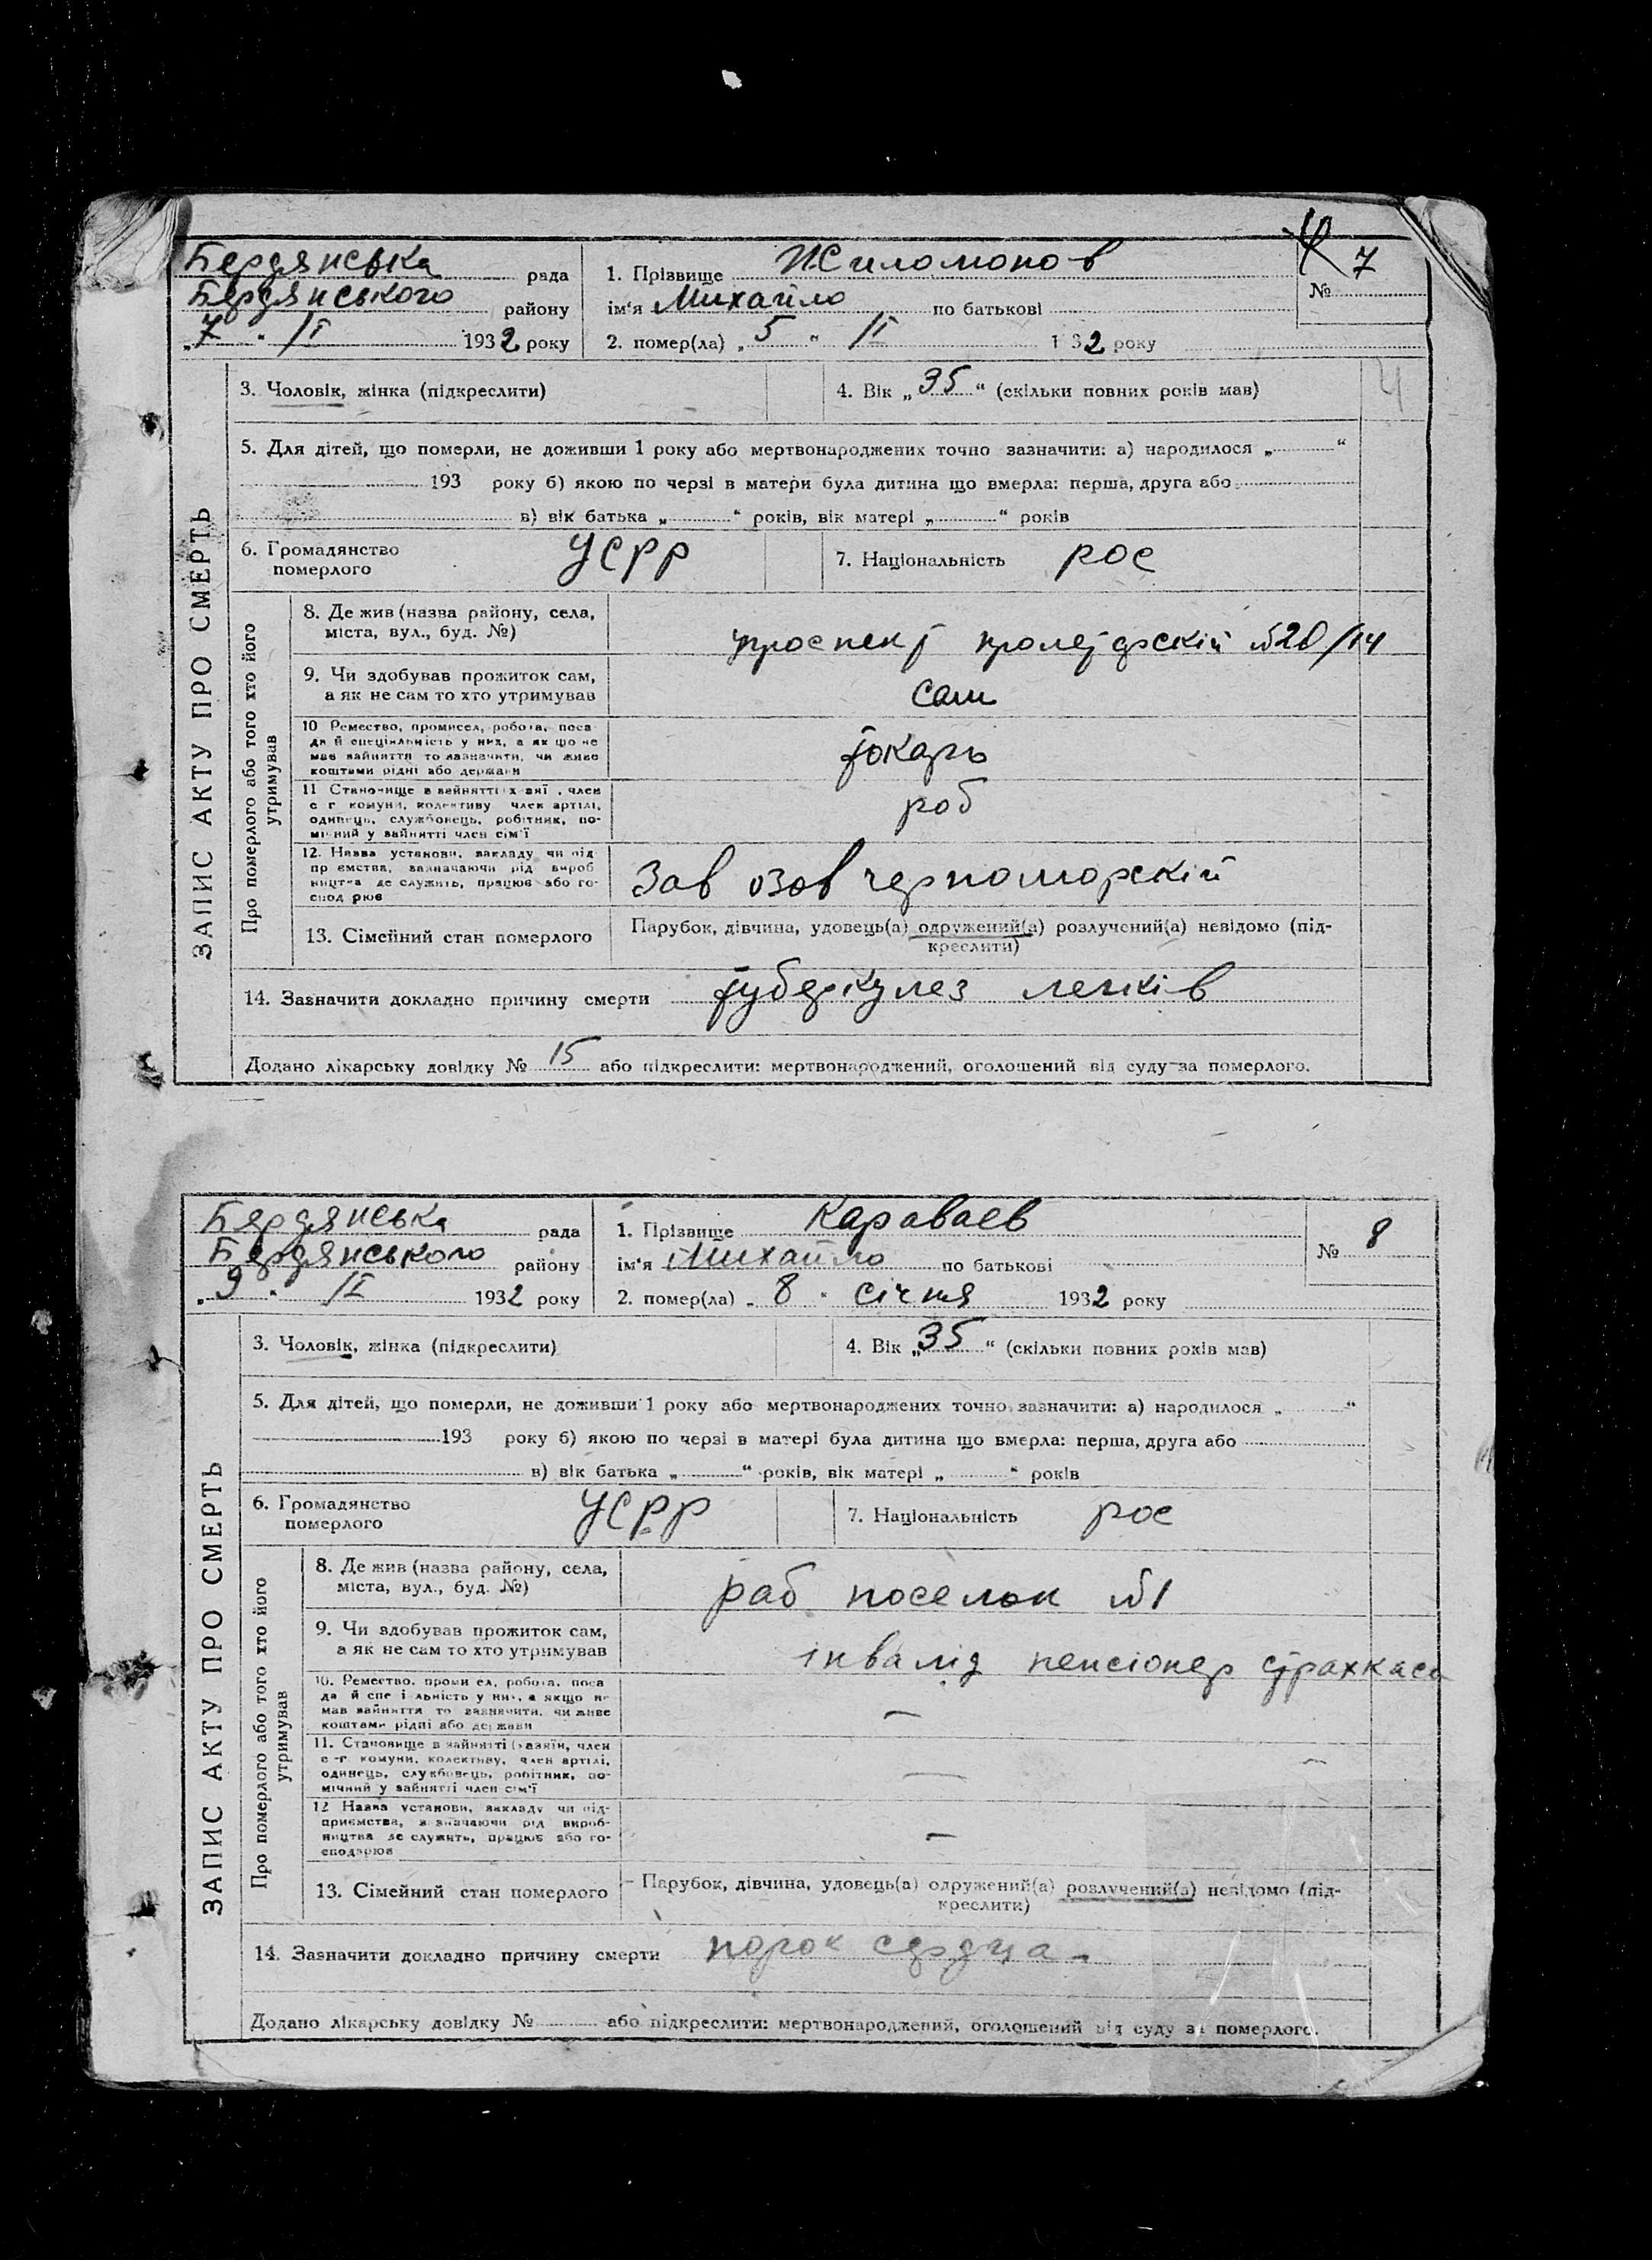 Бердянська рада
Бердянського району
„7“ /I 1932 року
1. Прізвище Жиломонов
ім'я Михайло по батькові
2. помер(ла) „5“ /I 1 32 року
№ 7
3. Чоловік, жінка (підкреслити)
4. Вік „35“ (скільки повних років мав)
4
5. Для дітей, що померли, не доживши 1 року або мертвонароджених точно зазначити: а) народилося „ “
193 року б) якою по черзі в матери була дитина що вмерла: перша, друга або
в) вік батька „ “ років, вік матері „ “ років
6. Громадянство
померлого
УСРР
7. Національність рос
ЗАПИС АКТУ ПРО СМЕРТЬ
Про померлого або того хто його
утримував
8. Де жив (назва району, села,
міста, вул., буд. №)
проспект пролетарскій №20/14
9. Чи здобував прожиток сам,
а як не сам то хто утримував
сам
10 Ремество, промисел, робота, поса
да й спеціяльність у них, а як що не
мав зайняття то зазначити, чи живе
коштами рідні або держави
токарь
11 Становище в зайнятті член
с г комуни, колективу член артілі,
одинець, службовець, робітник, по-
мічний у зайнятті член сім'ї
роб
12. Назва установи, закладу чи під
пр ємства, зазначаючи рід вироб
ництва де служить, працює або го-
спод рює
Зав озовчерноморскій
13. Сімейний стан померлого
Парубок, дівчина, удовець(а) одружений(а) розлучений(а) невідомо (під-
креслити)
14. Зазначити докладно причину смерти туберкулез легків
Додано лікарську довідку № 15 або підкреслити: мертвонароджений, оголошений від суду за померлого.
Бердянська рада
Бердянського району
„9“ /I 1932 року
1. Прізвище Караваев
ім'я Михайло по батькові
2. помер(ла) „8“ січня 1932 року
№ 8
3. Чоловік, жінка (підкреслити)
4. Вік „35“ (скільки повних років мав)
5. Для дітей, що померли, не доживши 1 року або мертвонароджених точно зазначити: а) народилося „ “
193 року б) якою по черзі в матері була дитина що вмерла: перша, друга або
в) вік батька „ “ років, вік матері „ “ років
6. Громадянство
померлого
УСРР
7. Національність рос
ЗАПИС АКТУ ПРО СМЕРТЬ
Про померлого або того хто його
утримував
8. Де жив (назва району, села,
міста, вул., буд. №)
раб поселок №1
9. Чи здобував прожиток сам,
а як не сам то хто утримував
інвалід пенсіонер страхкаси
10. Ремество, проми ел, робота, поса
да й спе і льність у них, а якщо не
мав зайняття то зазначити, чи живе
коштами рідні або держави
—
11. Становище в зайнятті член
с-г комуни, колективу, член артілі,
одинець, службовець, робітник, по-
мічний у зайнятті член сім'ї
—
12 Назва установи, закладу чи під-
приємства, зазначаючи рід вироб-
ництва де служить, працює або го-
сподарює
—
13. Сімейний стан померлого
Парубок, дівчина, удовець(а) одружений(а) розлучений(а) невідомо (під-
креслити)
14. Зазначити докладно причину смерти порок сердца
Додано лікарську довідку № або підкреслити: мертвонароджений, оголошений від суду за померлого.